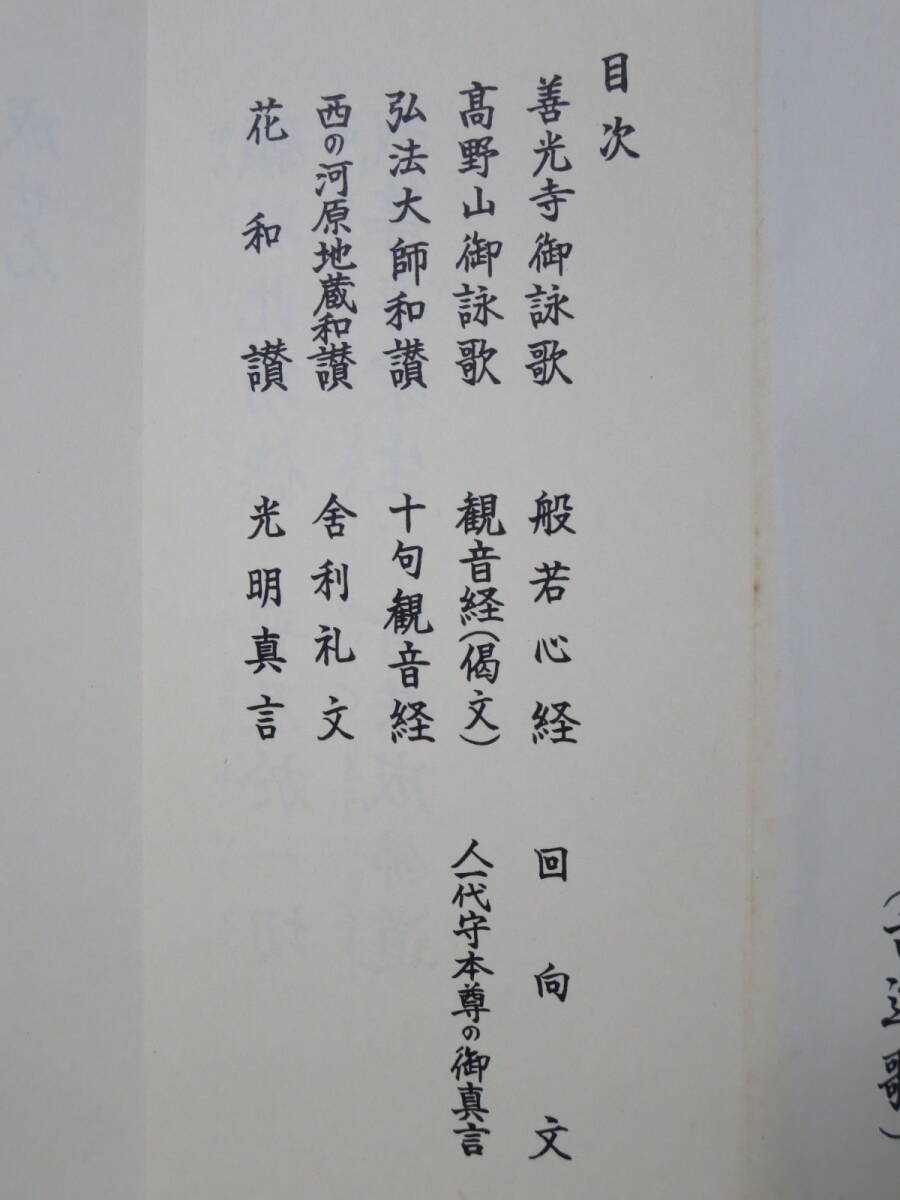 目次
善光寺御詠歌
高野山御詠歌
弘法大師和讃
西の河原地蔵和讃
花和讃
般若心経
観音経(偈文)
十句観音経
舎利礼文
光明真言
回向文
人一代守本尊の御真言